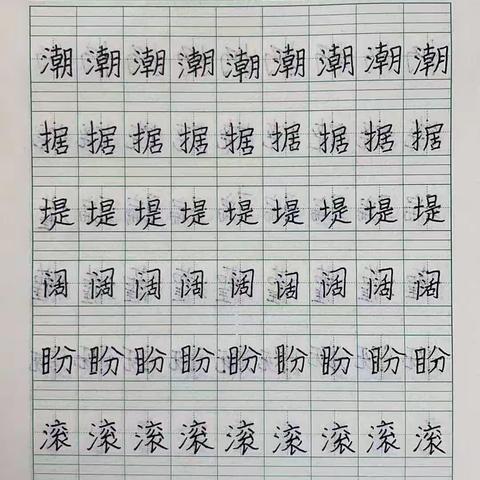 潮潮潮潮潮潮潮潮潮
据据据据据据据据据
堤堤堤堤堤堤堤堤堤
阔阔阔阔阔阔阔阔阔
盼盼盼盼盼盼盼盼盼
滚滚滚滚滚滚滚滚滚